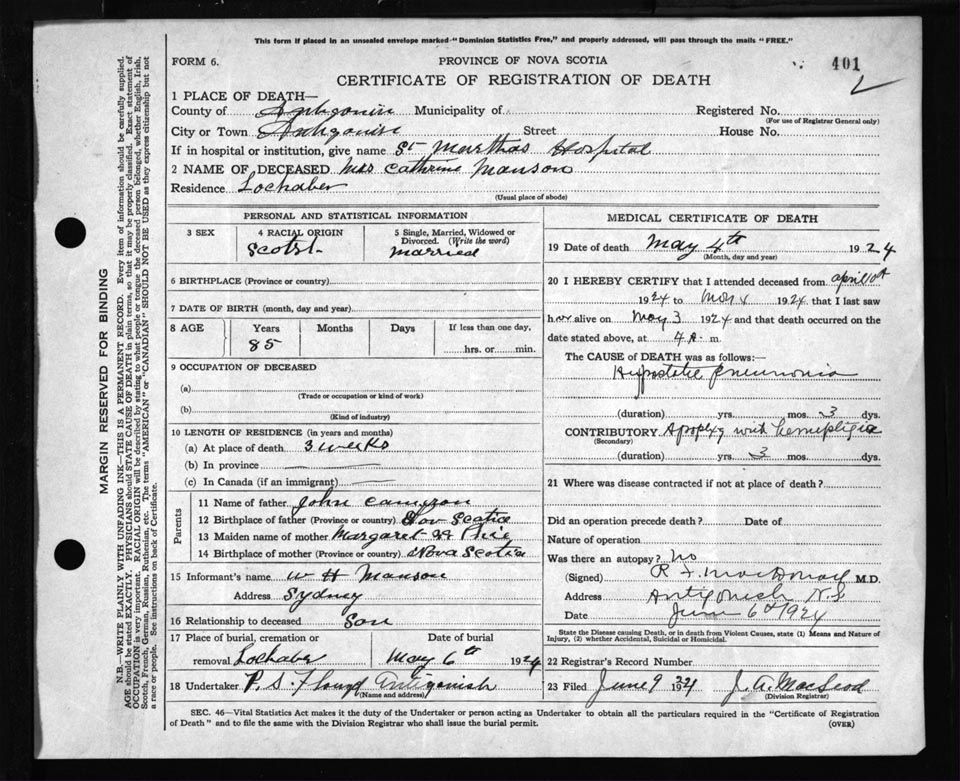 This form if placed in an unsealed envelope marked "Dominion Statistics Free," and properly addressed, will pass through the mails "FREE."
FORM 6.
PROVINCE OF NOVA SCOTIA
401
CERTIFICATE OF REGISTRATION OF DEATH
1 PLACE OF DEATH—
County of Antigonish Municipality of Registered No.
(For use of Registrar General only)
City or Town Antigonish Street House No.
If in hospital or institution, give name St Marthas Hospital
2 NAME OF DECEASED Mrs Cathrine Manson
Residence Lochaber
(Usual place of abode)
PERSONAL AND STATISTICAL INFORMATION
3 SEX
4 RACIAL ORIGIN
Scotst.
5 Single, Married, Widowed or Divorced. (Write the word)
married
6 BIRTHPLACE (Province or country)
7 DATE OF BIRTH (month, day and year)
8 AGE Years Months Days If less than one day,
85 hrs. or min.
9 OCCUPATION OF DECEASED
(a)
(Trade or occupation or kind of work)
(b)
(Kind of industry)
10 LENGTH OF RESIDENCE (in years and months)
(a) At place of death 3 weeks
(b) In province
(c) In Canada (if an immigrant)
Parents
11 Name of father John Cameron
12 Birthplace of father (Province or country) Nov Scotia
13 Maiden name of mother Margaret
14 Birthplace of mother (Province or country) Nova Scotia
15 Informant's name W H Manson
Address Sydney
16 Relationship to deceased Son
17 Place of burial, cremation or removal Lochaber
Date of burial
May 6th 1924
18 Undertaker P. S. Floyd Antigonish
(Name and address)
MEDICAL CERTIFICATE OF DEATH
19 Date of death May 4th 1924
(Month, day and year)
20 I HEREBY CERTIFY that I attended deceased from april 10th
1924 to May 4 1924 that I last saw
her alive on May 3 1924 and that death occurred on the
date stated above, at 4 A. m.
The CAUSE of DEATH was as follows:—
Hypostatic pneumonia
(duration) yrs. mos. 3 dys.
CONTRIBUTORY Apoplexy with hemiplegia
(Secondary)
(duration) yrs. 3 mos. dys.
21 Where was disease contracted if not at place of death?
Did an operation precede death? Date of
Nature of operation
Was there an autopsy? No
(Signed) R. F. MacDonald M.D.
Address Antigonish N.S
Date June 6th 1924
State the Disease causing Death, or in death from Violent Causes, state (1) Means and Nature of Injury, (2) whether Accidental, Suicidal or Homicidal.
22 Registrar's Record Number
23 Filed June 9 1924 J. A. MacLeod
(Division Registrar)
SEC. 46—Vital Statistics Act makes it the duty of the Undertaker or person acting as Undertaker to obtain all the particulars required in the "Certificate of Registration
of Death" and to file the same with the Division Registrar who shall issue the burial permit.
(OVER)
MARGIN RESERVED FOR BINDING
N.B.—WRITE PLAINLY WITH UNFADING INK—THIS IS A PERMANENT RECORD. Every item of information should be carefully supplied.
AGE should be stated EXACTLY. PHYSICIANS should STATE CAUSE OF DEATH in plain terms, so that it may be properly classified. Exact statement of
OCCUPATION is very important. RACIAL ORIGIN will be described by stating to what people or tongue the deceased person belonged, whether English, Irish,
Scotch, French, German, Russian, Ruthenian, etc. The terms "AMERICAN" or "CANADIAN" SHOULD NOT BE USED as they express citizenship but not
a race or people. See instructions on back of Certificate.